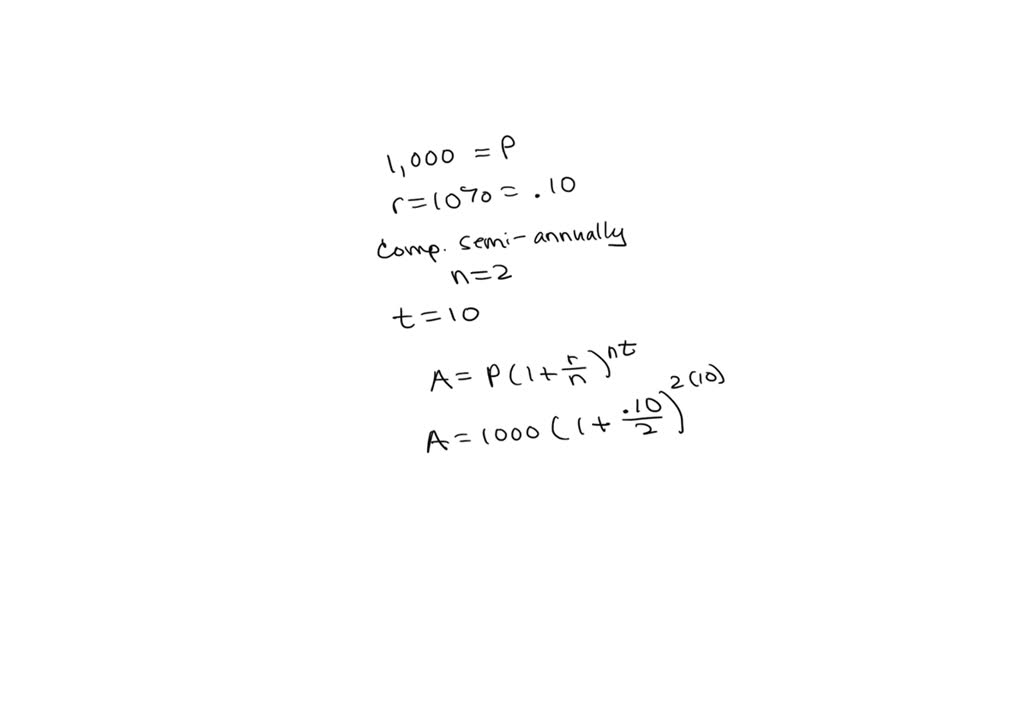 1,000 = P
r=10%= .10
Comp. semi-annually
n=2
t=10
A= P(1+r/n)^nt
A=1000(1+.10/2)^2(10)